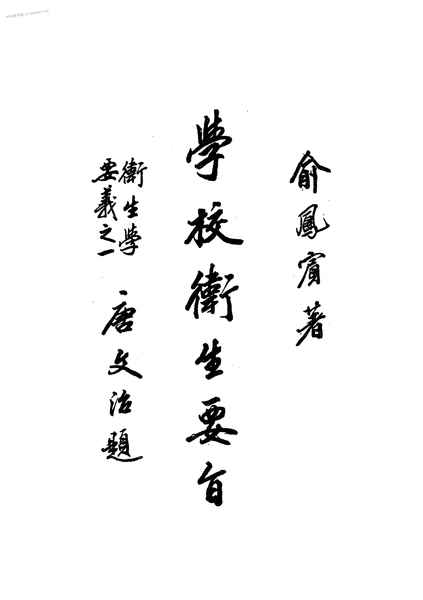 俞鳳賓著
學校衛生要旨
衛生學
要義之一
唐文治題